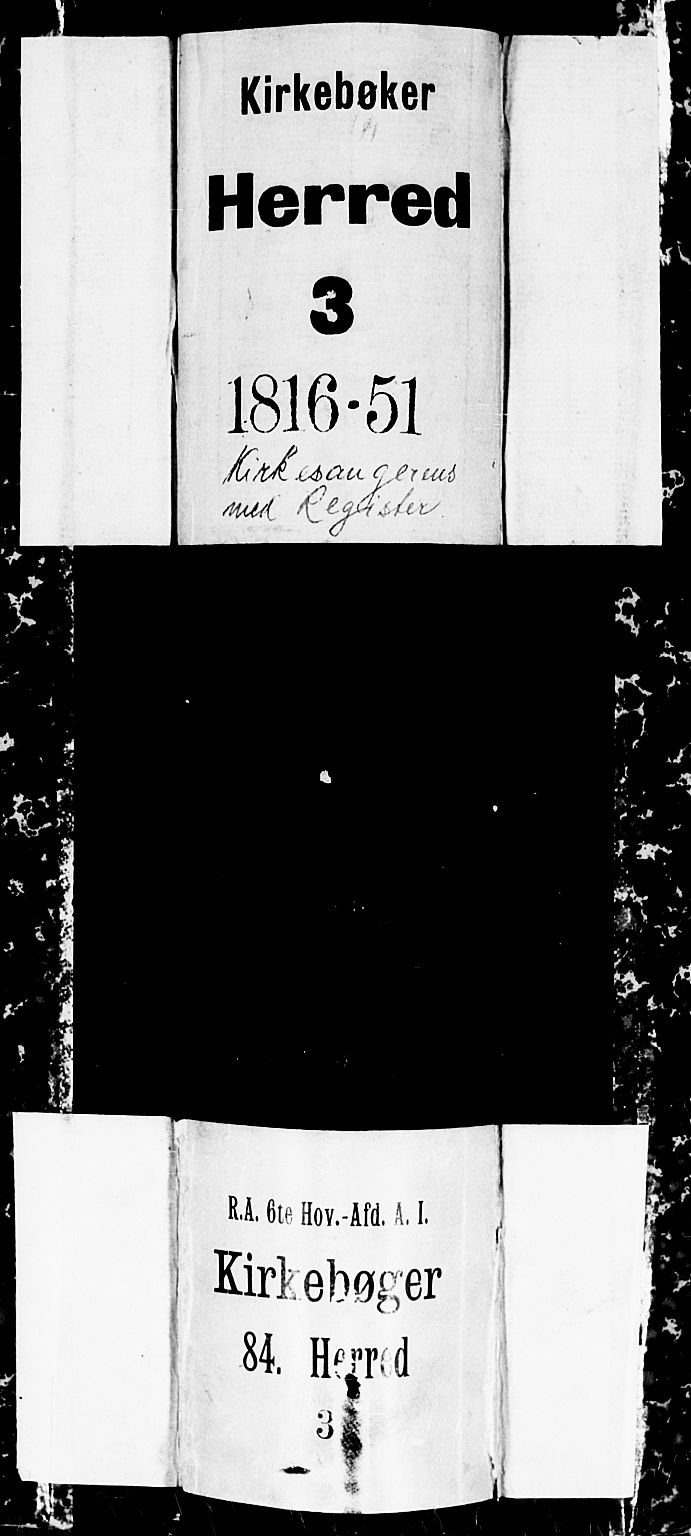 Kirkebøker
Herred
3
1816-51
Kirkesangerens
med Register.
R.A. 6te Hov.-Afd. A. I.
Kirkebøger
84. Herred
3